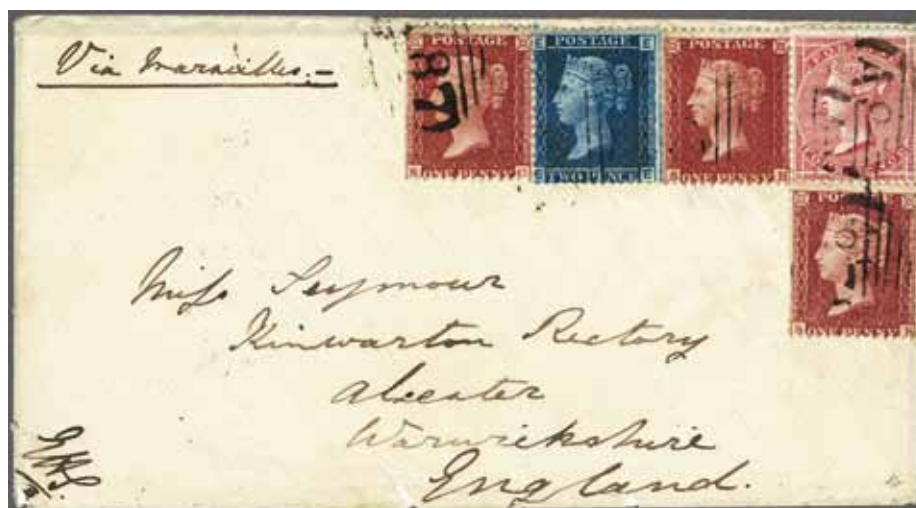 Via Marseilles.—
POSTAGE
ONE PENNY
POSTAGE
TWO PENCE
E E
POSTAGE
ONE PENNY
ONE PENNY
87
Miss Seymour
Kinwarton Rectory
Alcester
Warwickshire
England.